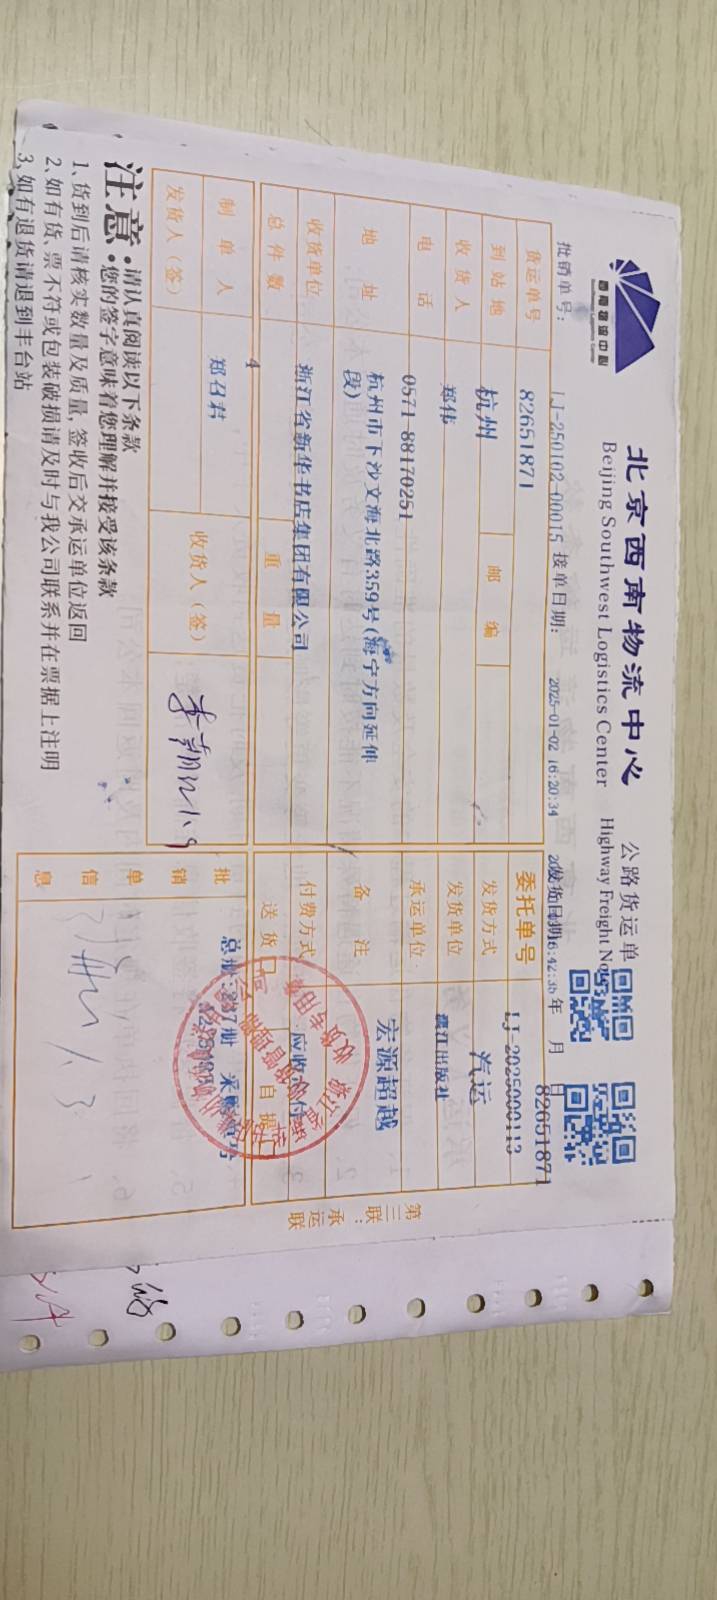 西南物流中心
Southwest Logistics Center
北京西南物流中心
Beijing Southwest Logistics Center
公路货运单
Highway Freight Note
批销单号: LJ-250102-00015 接单日期: 2025-01-02 16:20:34 发货日期: 年 月 日
货运单号 82651871
委托单号 LJ-2025000113
82651871
到站地 杭州 邮编
发货方式 汽运
收货人 郑伟
发货单位 漓江出版社
电话 0571-88170251
承运单位 宏源超越
地址 杭州市下沙文海北路359号(海宁方向延伸段)
备注
收货单位 浙江省新华书店集团有限公司
付费方式 应收
总件数 4 重量
送货 自提
制单人 郑召君
发货人(签) 收货人(签)
批销单信息 总册:237册
收货专用章
第三联:承运联
注意·请认真阅读以下条款
·您的签字意味着您理解并接受该条款
1、货到后请核实数量及质量,签收后交承运单位返回
2、如有货、票不符或包装破损请及时与我公司联系并在票据上注明
3、如有退货请退到丰台站